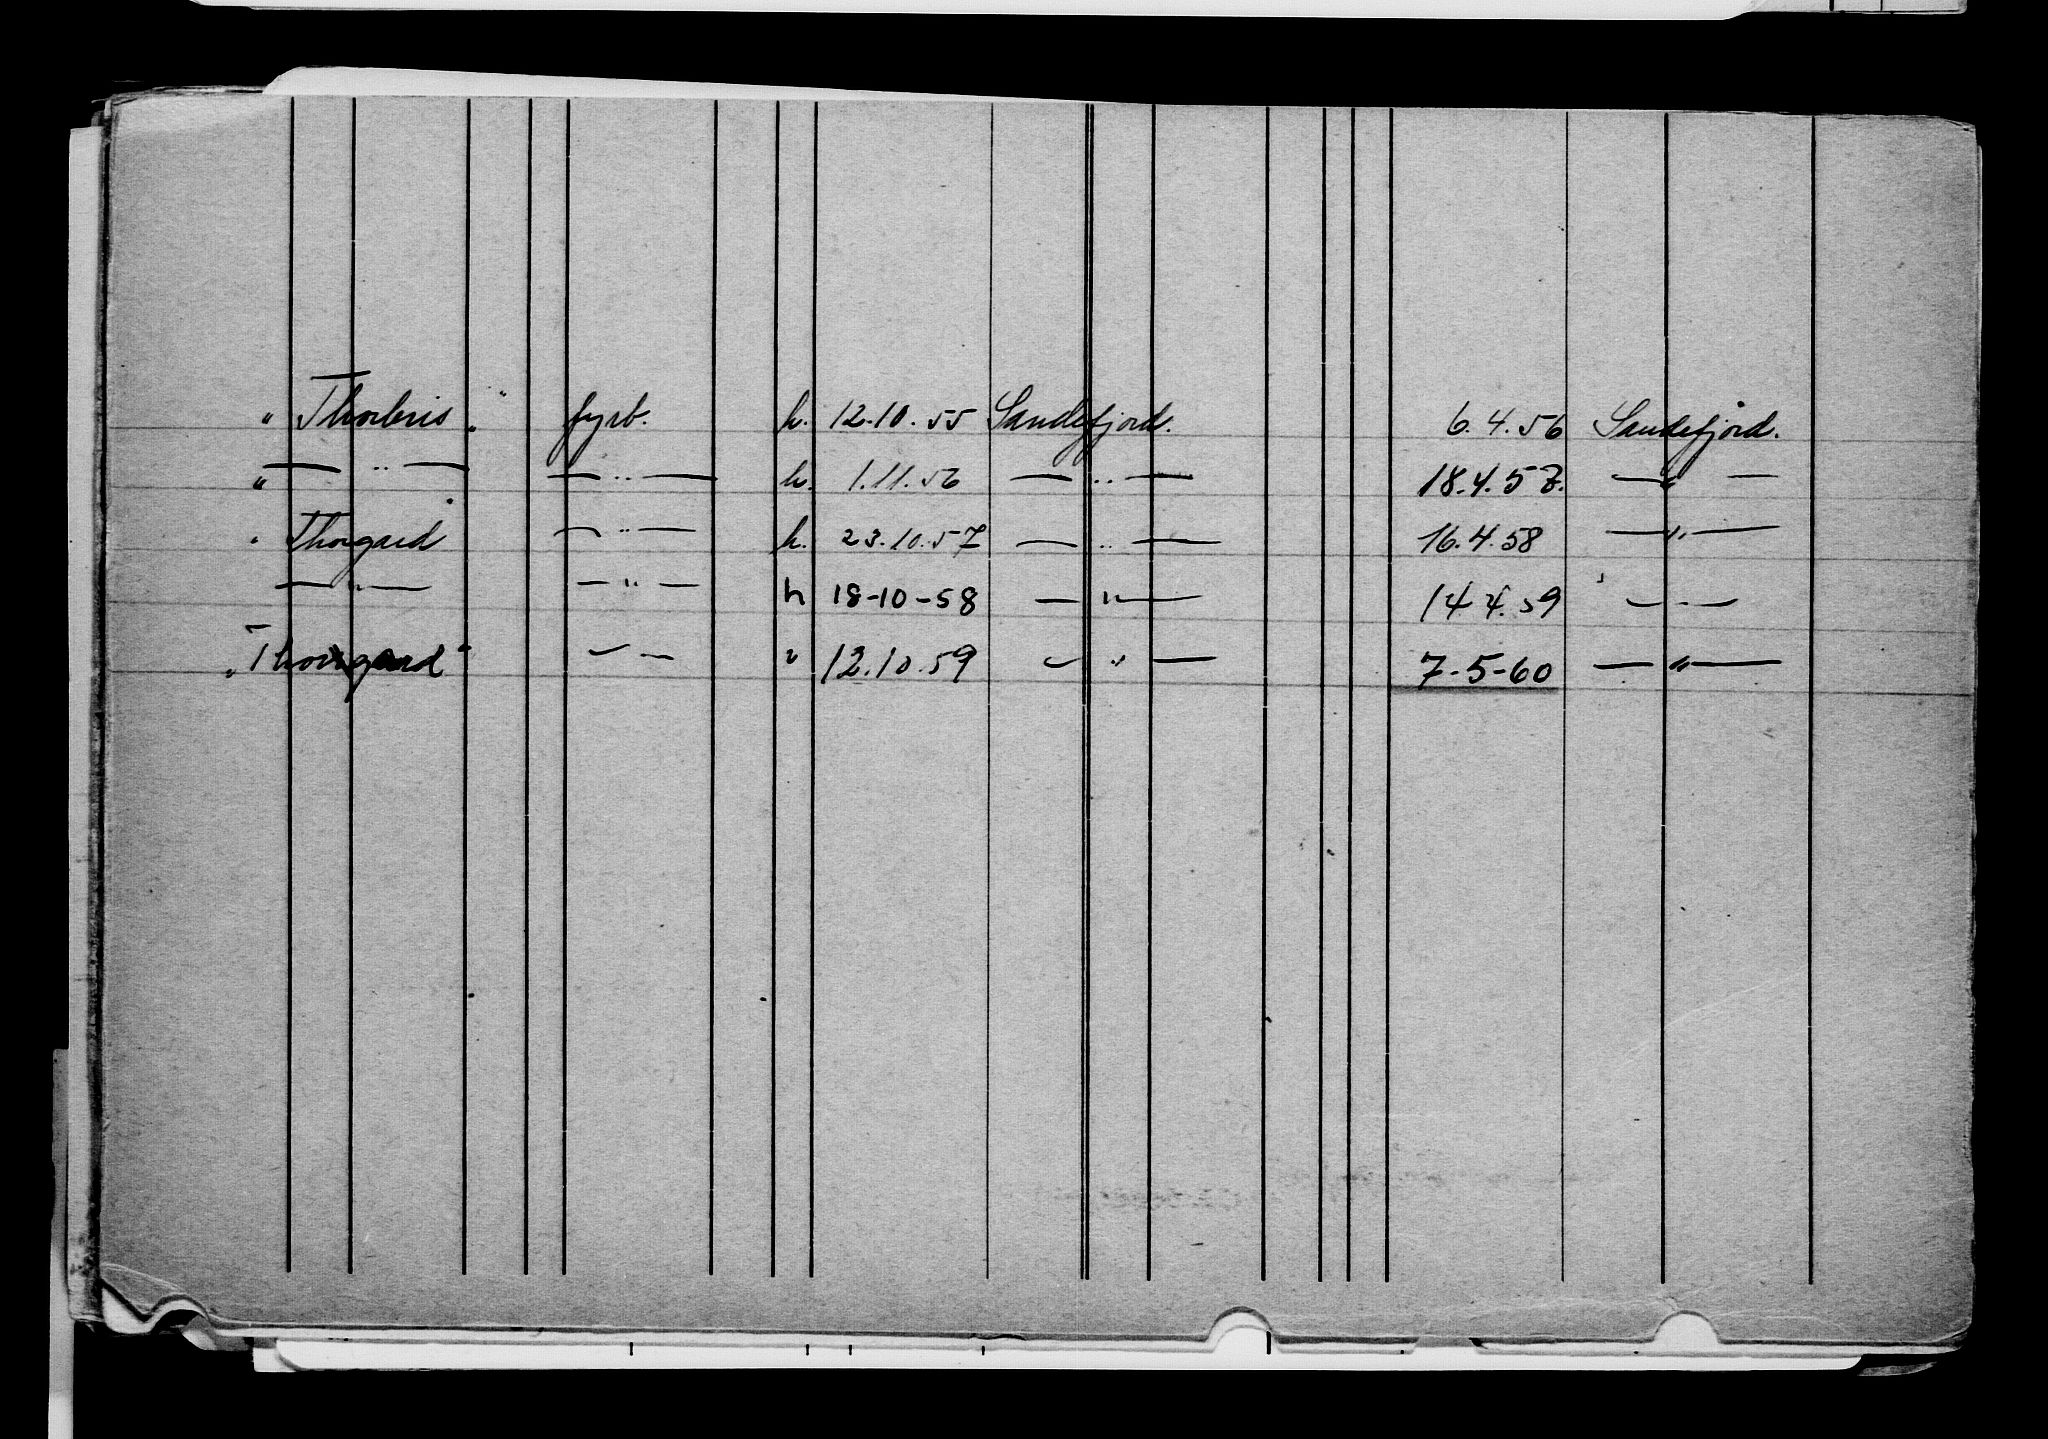 " Thorbris " fyrb. h. 12.10.55 Sandefjord. 6.4.56 Sandefjord.
" — " — — " — h. 1.11.56 — " — 18.4.57. — " —
" Thorgard " — " — h. 23.10.57 — " — 16.4.58 — " —
— " — — " — h 18-10-58 — " — 14.4.59 — " —
" Thorgard " — — " 12.10.59 — " — 7-5-60 — " —